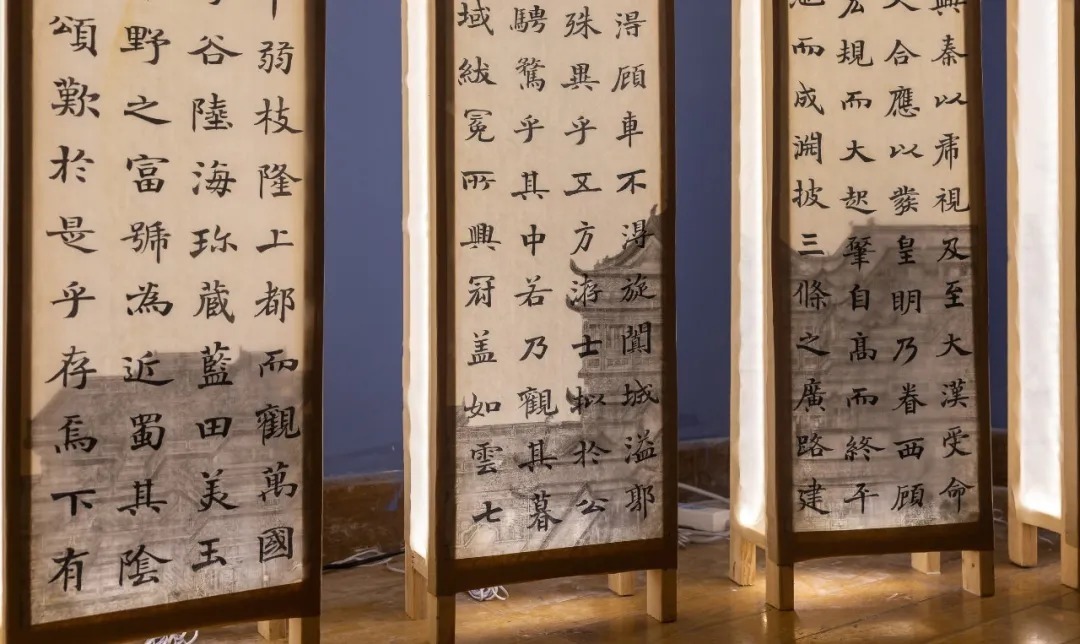 興秦以虎視及至大漢受命
天合應以發皇明乃眷西顧
宏規而大起肇自高而終平
而成淵披三條之廣路建
得顧車不得旋闐城溢郭
殊異乎五方游士擬於公
騁騖乎其中若乃觀其暮
域紱冕所興冠盖如雲七
弱枝隆上都而觀萬國
谷陸海珎蔵藍田美玉
野之富號為近蜀其陰
頌歎於是乎存焉下有